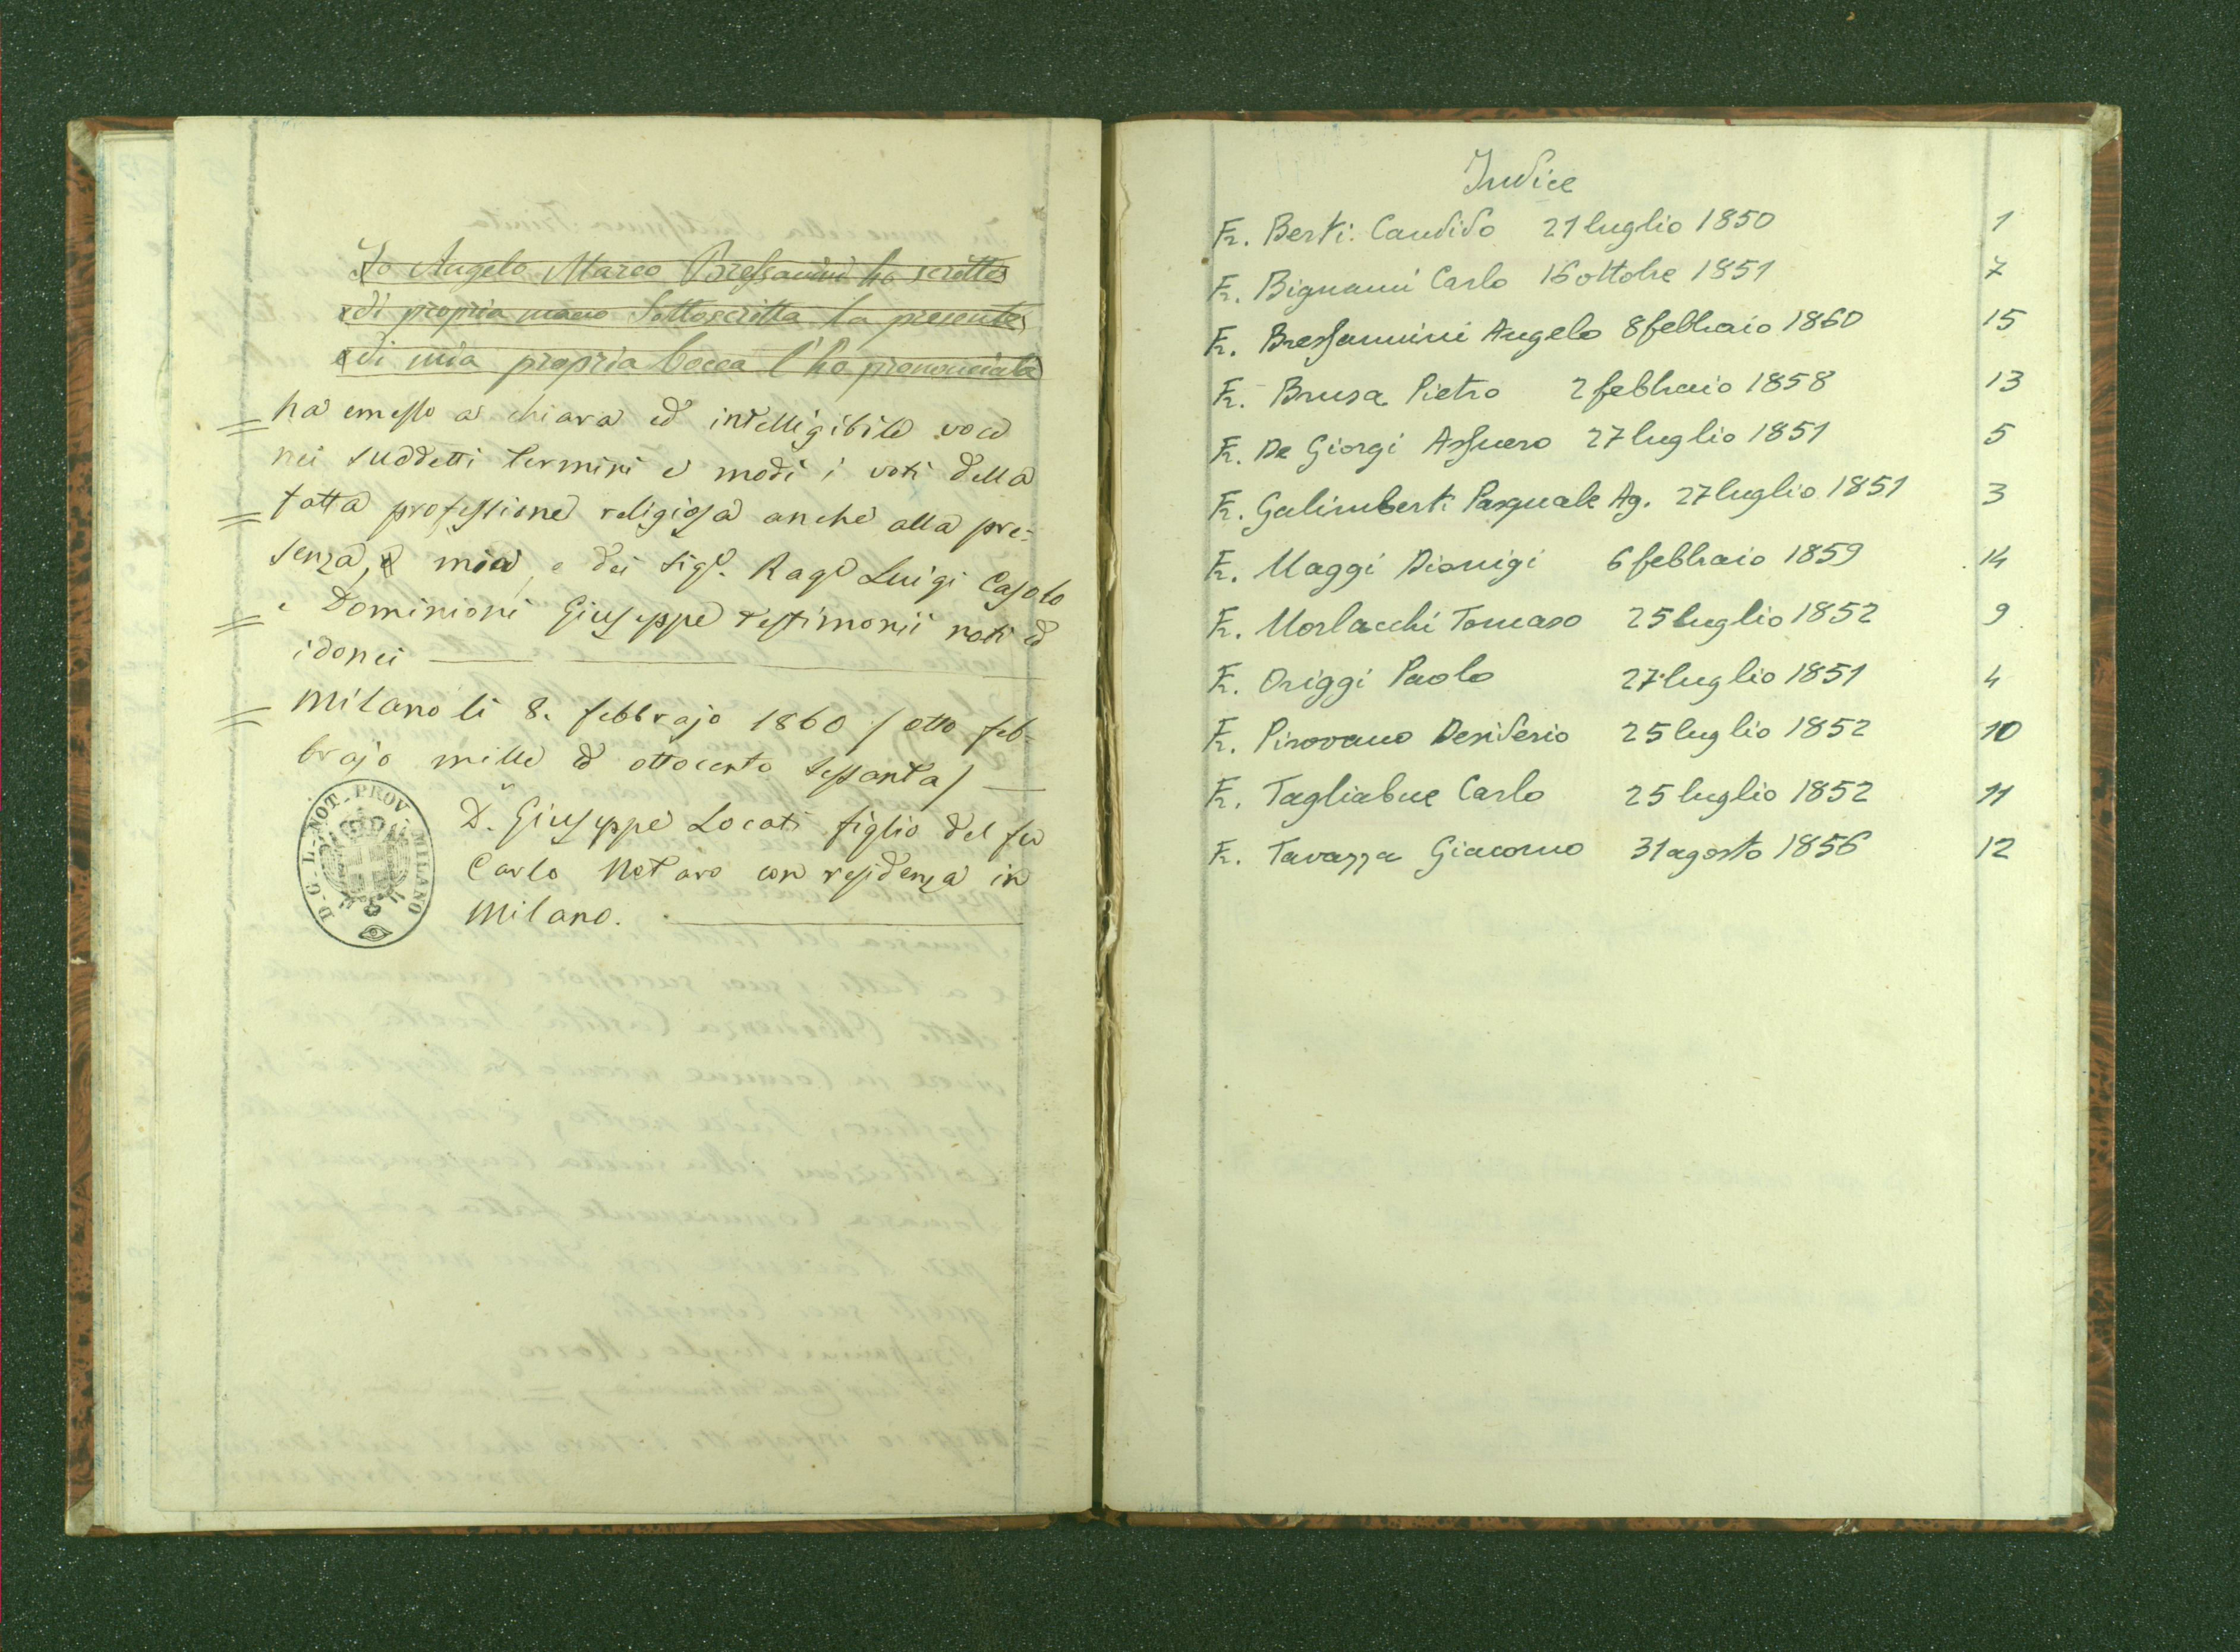 Io Angelo Marco Bressanini ho scritto
e di propria mano Sottoscritta la presente
e di mia propria bocca l'ho prononciata
= ha emesso a chiara ed intelligibile voce
nei suddetti termini e modi i voti della
= fatta professione religiosa anche alla pre-
senza, mia, e dei Sigi. Ragr Luigi Casolo
= e Dominioni Giuseppe testimonii noti ed
idonei
= Milano li 8. febbrajo 1860 / otto feb-
brajo mille ed ottocento sessanta /
Dr. Giuseppe Locati figlio del fu
Carlo Notaro con residenza in
Milano.
D-G-L-NOT-PROV. MILANO
Indice
Fr. Berti Candido 21 luglio 1850 1
Fr. Bignami Carlo 16 ottobre 1851 7
Fr. Bressannini Angelo 8 febbraio 1860 15
Fr. Brusa Pietro 2 febbraio 1858 13
Fr. De Giorgi Assuero 27 luglio 1851 5
Fr. Galimberti Pasquale Ag. 27 luglio 1851 3
Fr. Maggi Dionigi 6 febbraio 1859 14
Fr. Morlacchi Tomaso 25 luglio 1852 9
Fr. Origgi Paolo 27 luglio 1851 4
Fr. Pirovano Desiderio 25 luglio 1852 10
Fr. Tagliabue Carlo 25 luglio 1852 11
Fr. Tavazza Giacomo 31 agosto 1856 12